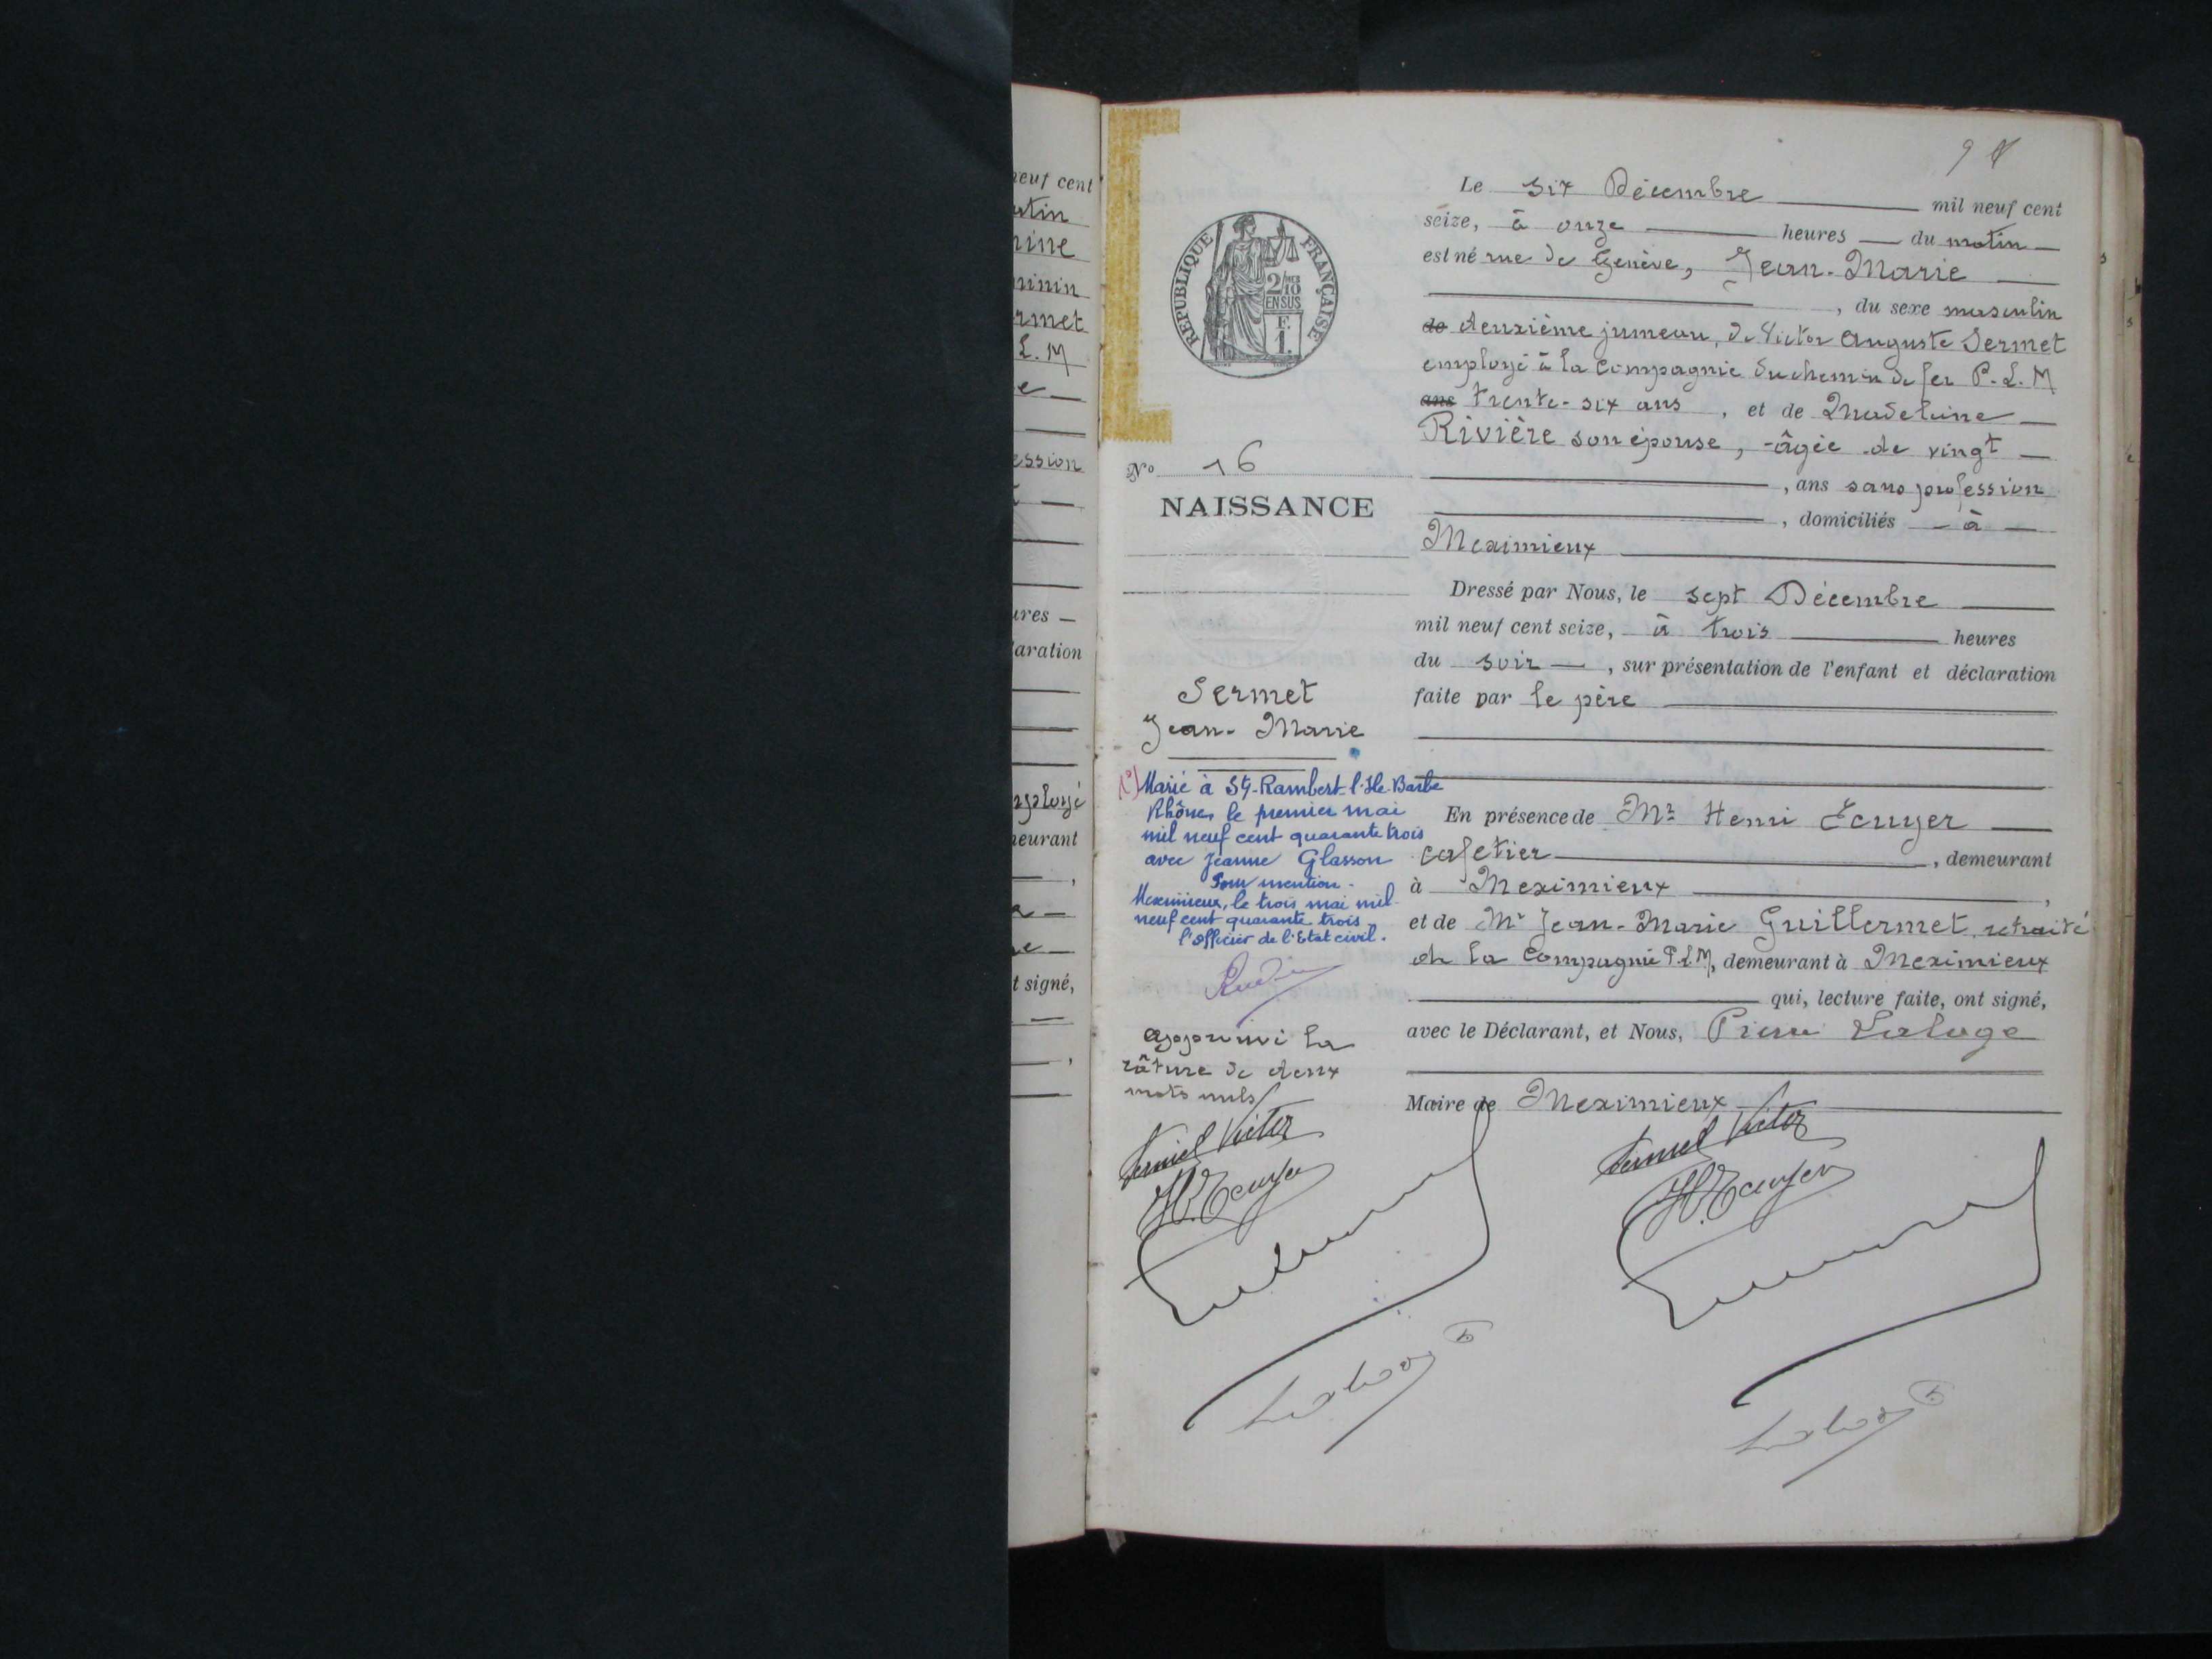 neuf cent
atin
nine
minin
rmet
L. M
e
ession
ures
aration
mployé
meurant
t signé,
9
RÉPUBLIQUE FRANÇAISE
2/10
EN SUS
F.
1.
Nº 16
NAISSANCE
Sermet
Jean-Marie
1º) Marié à St-Rambert-l'Ile-Barbe
Rhône, le premier mai
mil neuf cent quarante trois
avec Jeanne Glasson
Pour mention.
Meximieux, le trois mai mil
neuf cent quarante trois
l'officier de l'Etat civil.
approuvé la
râture de deux
mots nuls
Sermet Victor
H. Ecuyer
Le six Décembre mil neuf cent
seize, à onze heures du matin
est né rue de Genève, Jean-Marie
, du sexe masculin
de deuxième jumeau, de Victor Auguste Sermet
employé à la Compagnie du chemin de fer P.L.M
ans trente-six ans, et de Madeleine
Rivière son épouse, âgée de vingt
, ans sans profession
, domiciliés à
Meximieux
Dressé par Nous, le sept Décembre
mil neuf cent seize, à trois heures
du soir, sur présentation de l'enfant et déclaration
faite par le père
En présence de Mr Henri Ecuyer
cafetier, demeurant
à Meximieux,
et de Mr Jean-Marie Guillermet retraité
de la Compagnie P.L.M, demeurant à Meximieux
qui, lecture faite, ont signé,
avec le Déclarant, et Nous, Pierre Laloge
Maire de Meximieux
Sermet Victor
H. Ecuyer